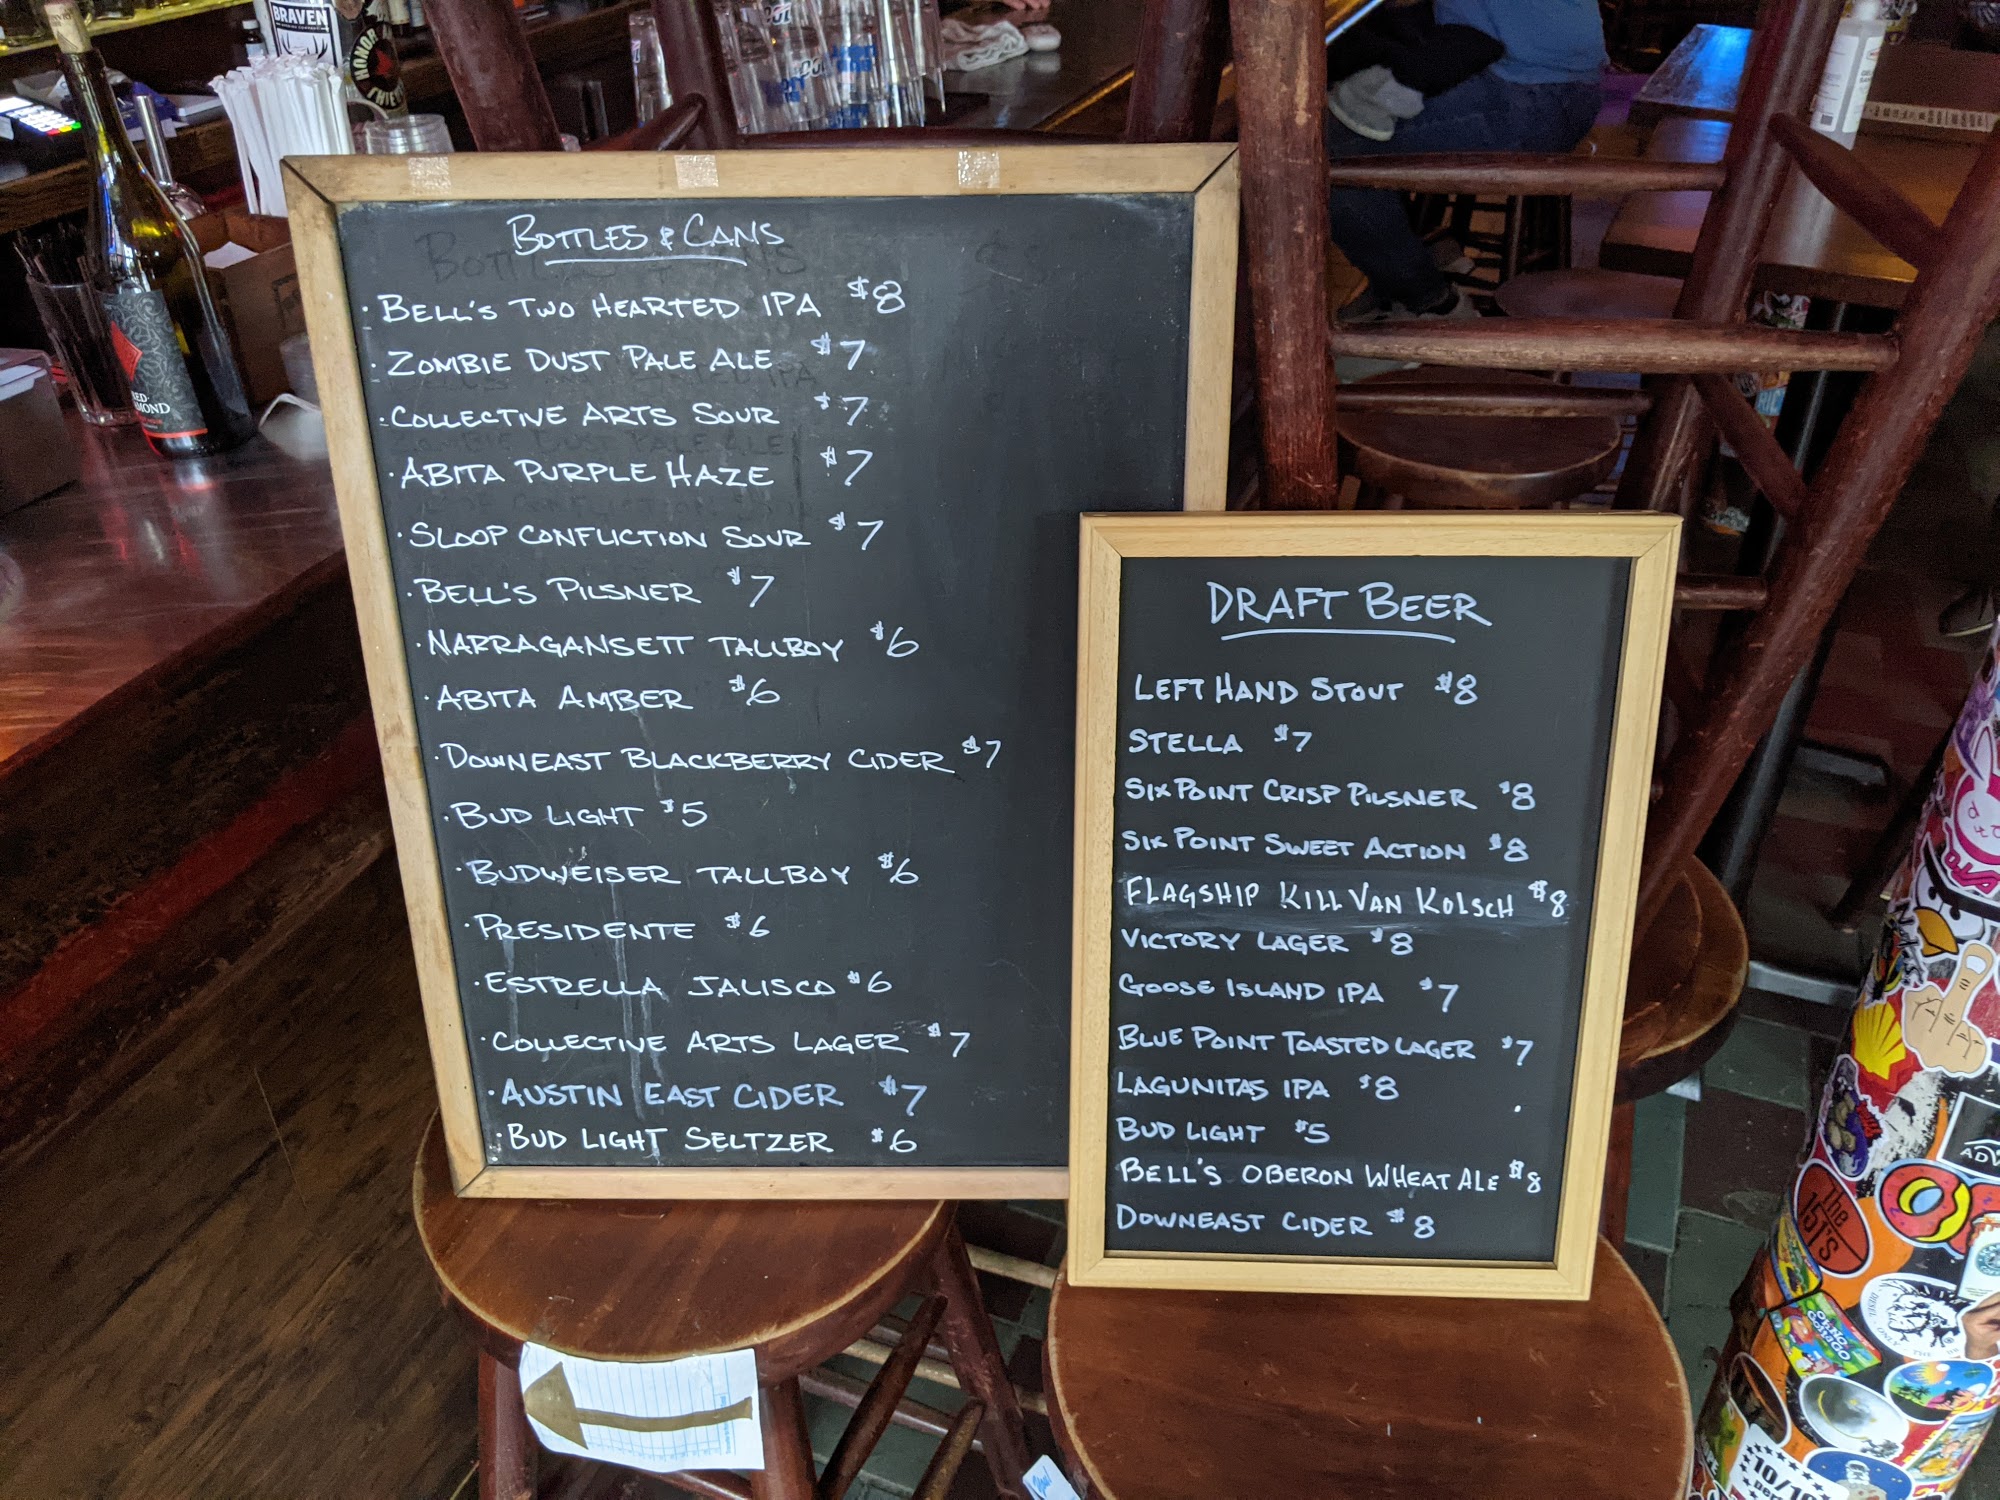 BRAVEN
BOTTLES & CANS
· BELL'S TWO HEARTED IPA $8
· ZOMBIE DUST PALE ALE $7
· COLLECTIVE ARTS SOUR $7
· ABITA PURPLE HAZE $7
· SLOOP CONFLICTION SOUR $7
· BELL'S PILSNER $7
· NARRAGANSETT TALLBOY $6
· ABITA AMBER $6
· DOWNEAST BLACKBERRY CIDER $7
· BUD LIGHT $5
· BUDWEISER TALLBOY $6
· PRESIDENTE $6
· ESTRELLA JALISCO $6
· COLLECTIVE ARTS LAGER $7
· AUSTIN EAST CIDER $7
· BUD LIGHT SELTZER $6
DRAFT BEER
LEFT HAND STOUT $8
STELLA $7
SIXPOINT CRISP PILSNER $8
SIX POINT SWEET ACTION $8
FLAGSHIP KILL VAN KOLSCH $8
VICTORY LAGER $8
GOOSE ISLAND IPA $7
BLUE POINT TOASTED LAGER $7
LAGUNITAS IPA $8
BUD LIGHT $5
BELL'S OBERON WHEAT ALE $8
DOWNEAST CIDER $8
The
15's